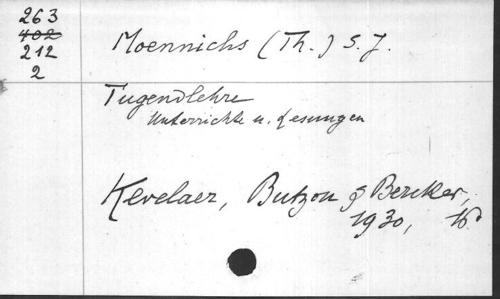 263
402
212
2
Moennichs (Th.) S.J.
Tugendlehre
Unterrichte u. Lesungen
Kevelaer, Butzon & Bercker,
1930, 16°